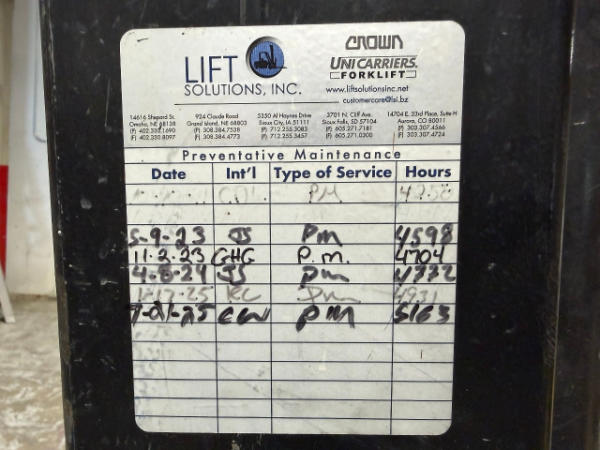 LIFT
SOLUTIONS, INC.
CROWN
UNICARRIERS.
FORKLIFT
www.liftsolutionsinc.net
customercare@lsi.bz
14616 Shepard St. 924 Claude Road 5350 Al Haynes Drive 3701 N. Cliff Ave. 14704 E. 33rd Place, Suite H
Omaha, NE 68138 Grand Island, NE 68803 Sioux City, IA 51111 Sioux Falls, SD 57104 Aurora, CO 80011
(P) 402.330.1690 (P) 308.384.7538 (P) 712.255.3083 (P) 605.271.7181 (P) 303.307.4566
(F) 402.330.8097 (F) 308.384.4773 (F) 712.255.3457 (F) 605.271.0300 (F) 303.307.4724
Preventative Maintenance
Date Int'l Type of Service Hours
PM
5-9-23 JS PM 4598
11-2-23 GHG P.m. 4704
4-8-24 JS pm 4772
-25 KC Pm 4931
7-21-25 CW PM 5163